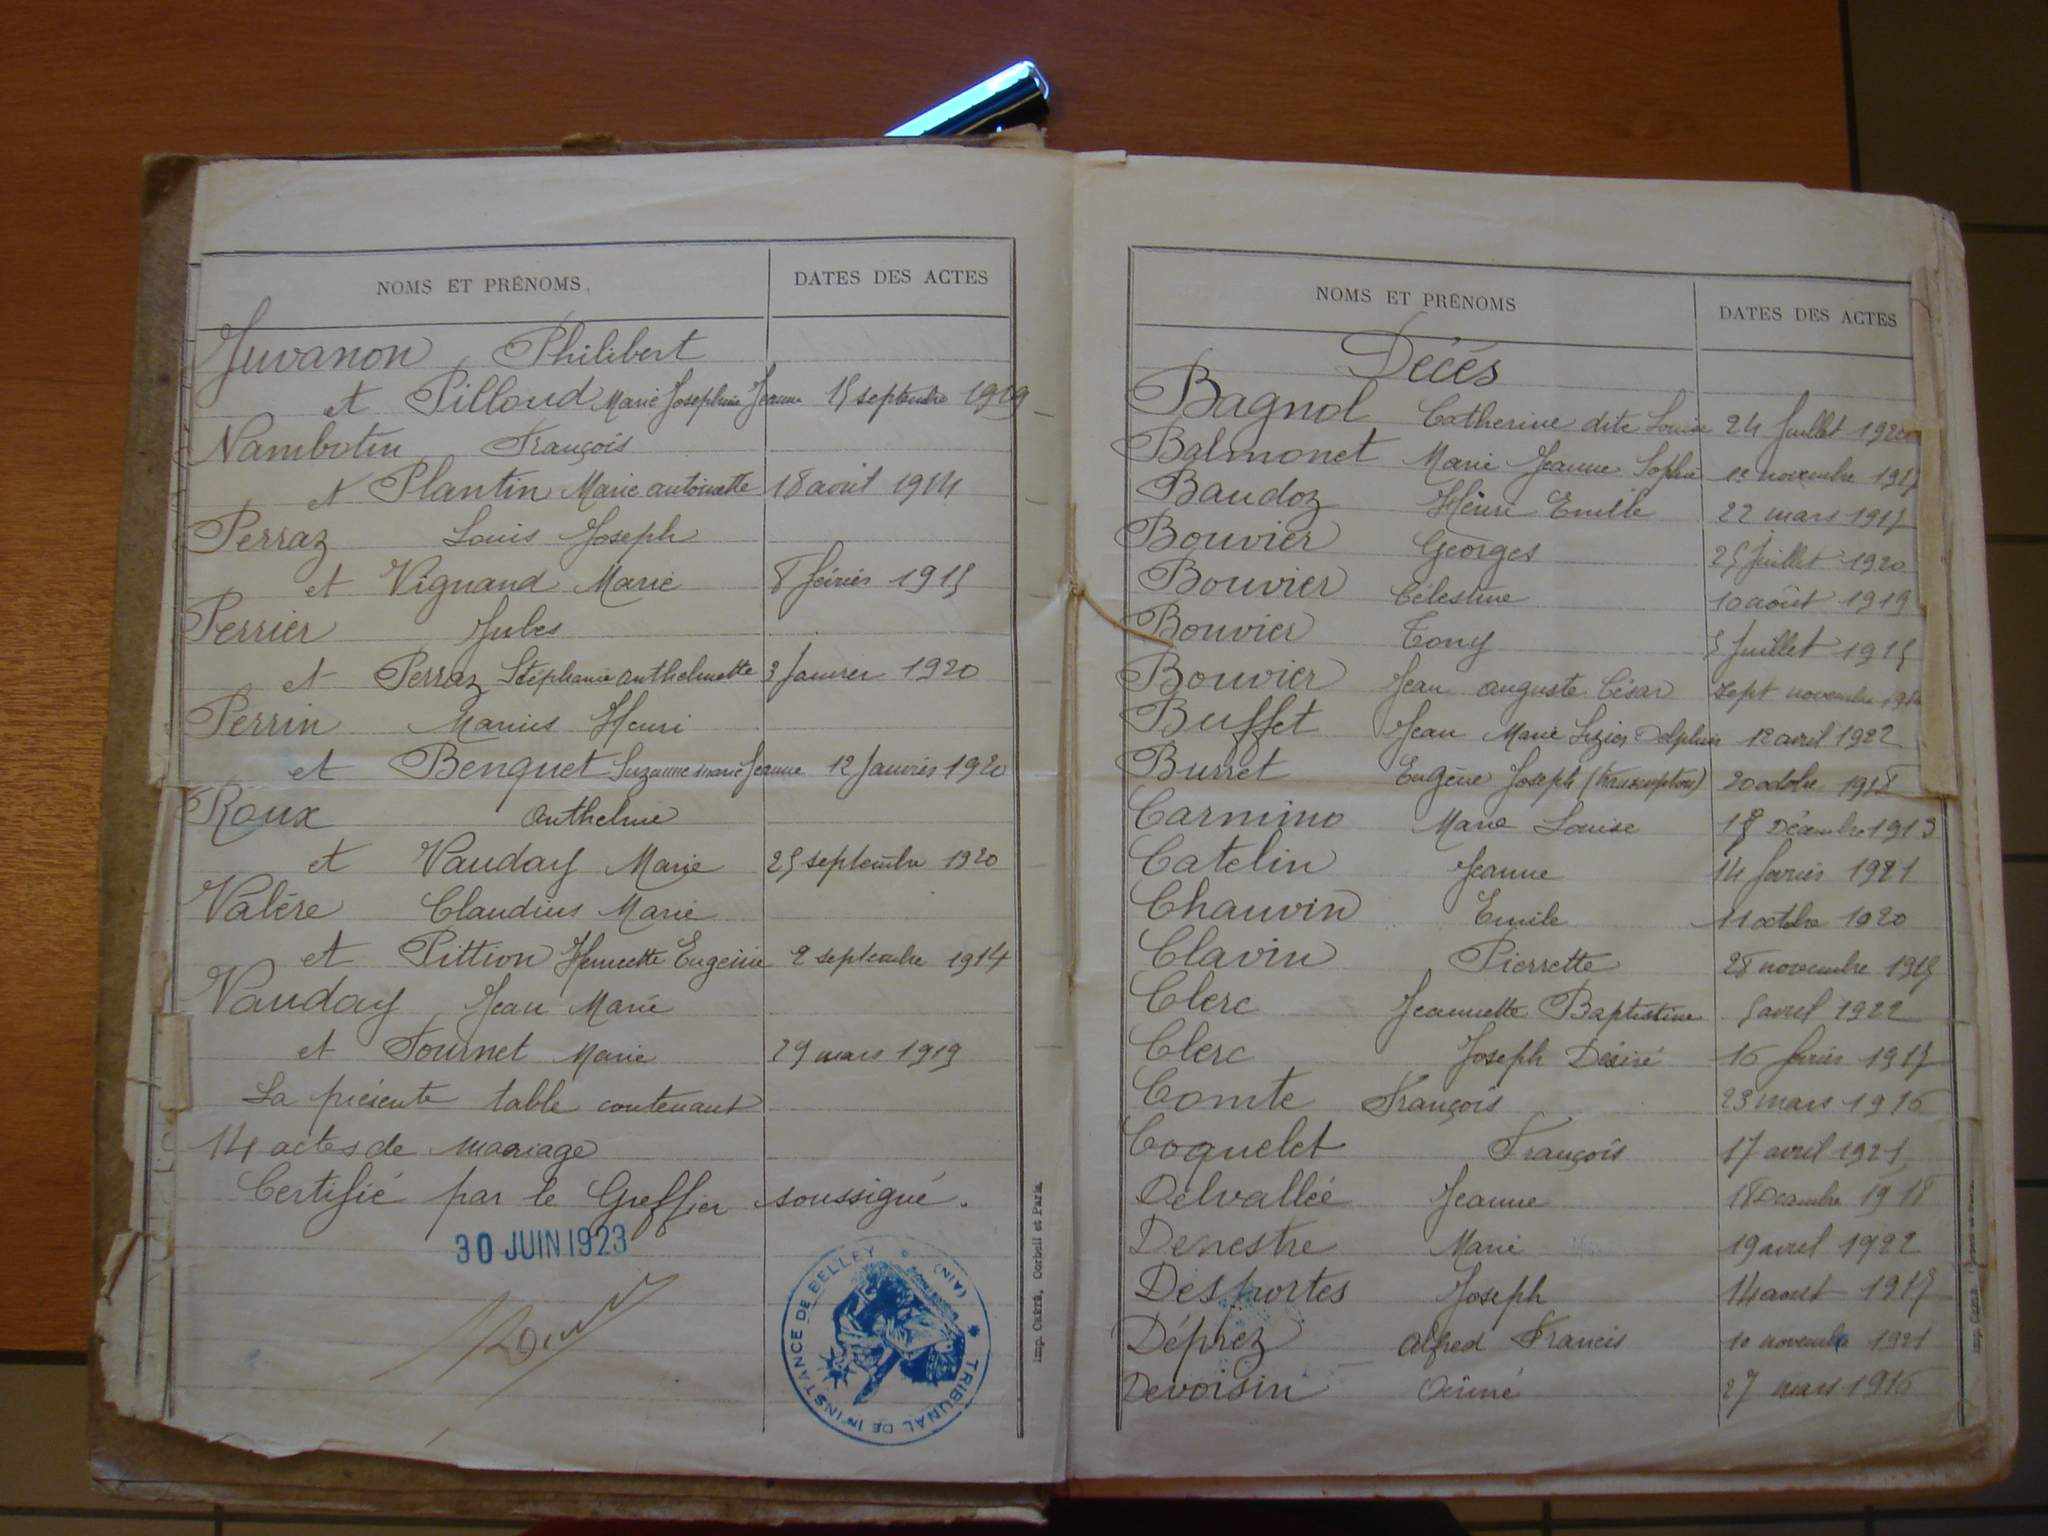 NOMS ET PRÉNOMS
DATES DES ACTES
Juvanon Philibert
et Pilloud Marie Josephine Jeanne 15 septembre 1919
Nambotin François
et Plantin Marie antoinette 18 août 1914
Perraz Louis Joseph
et Vignand Marie 8 février 1915
Perrier Jules
et Perraz Stéphanie anthelmette 3 Janvier 1920
Perrin Marius Henri
et Benquet Suzanne marie Jeanne 12 Janvier 1920
Roux anthelme
et Vauday Marie 25 septembre 1920
Valère Claudius Marie
et Pittion Henriette Eugénie 2 septembre 1914
Vauday Jean Marie
et Tournet Marie 29 mars 1919
La présente table contenant
14 actes de mariage
Certifié par le Greffier soussigné.
30 JUIN 1923
TRIBUNAL DE 1e INSTANCE DE BELLEY (AIN)
Imp. Crété, Corbeil et Paris.
NOMS ET PRÉNOMS
DATES DES ACTES
Décès
Bagnol Catherine dite Louise 24 Juillet 1920
Balmonet Marie Jeanne Sophie novembre
Baudoz Henri Emile 22 mars 1917
Bouvier Georges 25 Juillet 1920
Bouvier Célestine 10 août 1919
Bouvier Tony 5 Juillet 1915
Bouvier Jean auguste César sept novembre
Buffet Jean Marie Lizier Delphin 12 avril 1922
Burret Eugène Joseph (transcription) 20 octobre 1918
Carmino Marie Louise Décembre 1913
Catelin Jeanne 14 février 1921
Chauvin Emile 11 octobre 1920
Clavin Pierrette 28 novembre 1915
Clerc Jeannette Baptistine 5 avril 1922
Clerc Joseph Désiré 16 février 1917
Comte François 23 mars 1916
Coquelet François 17 avril 1921
Delvallée Jeanne 18 Decembre 1918
Denestre Marie 19 avril 1922
Desportes Joseph 14 aout 1915
Déprez alfred Francis 10 novembre 1921
Devoisin aimé 27 mars 1916